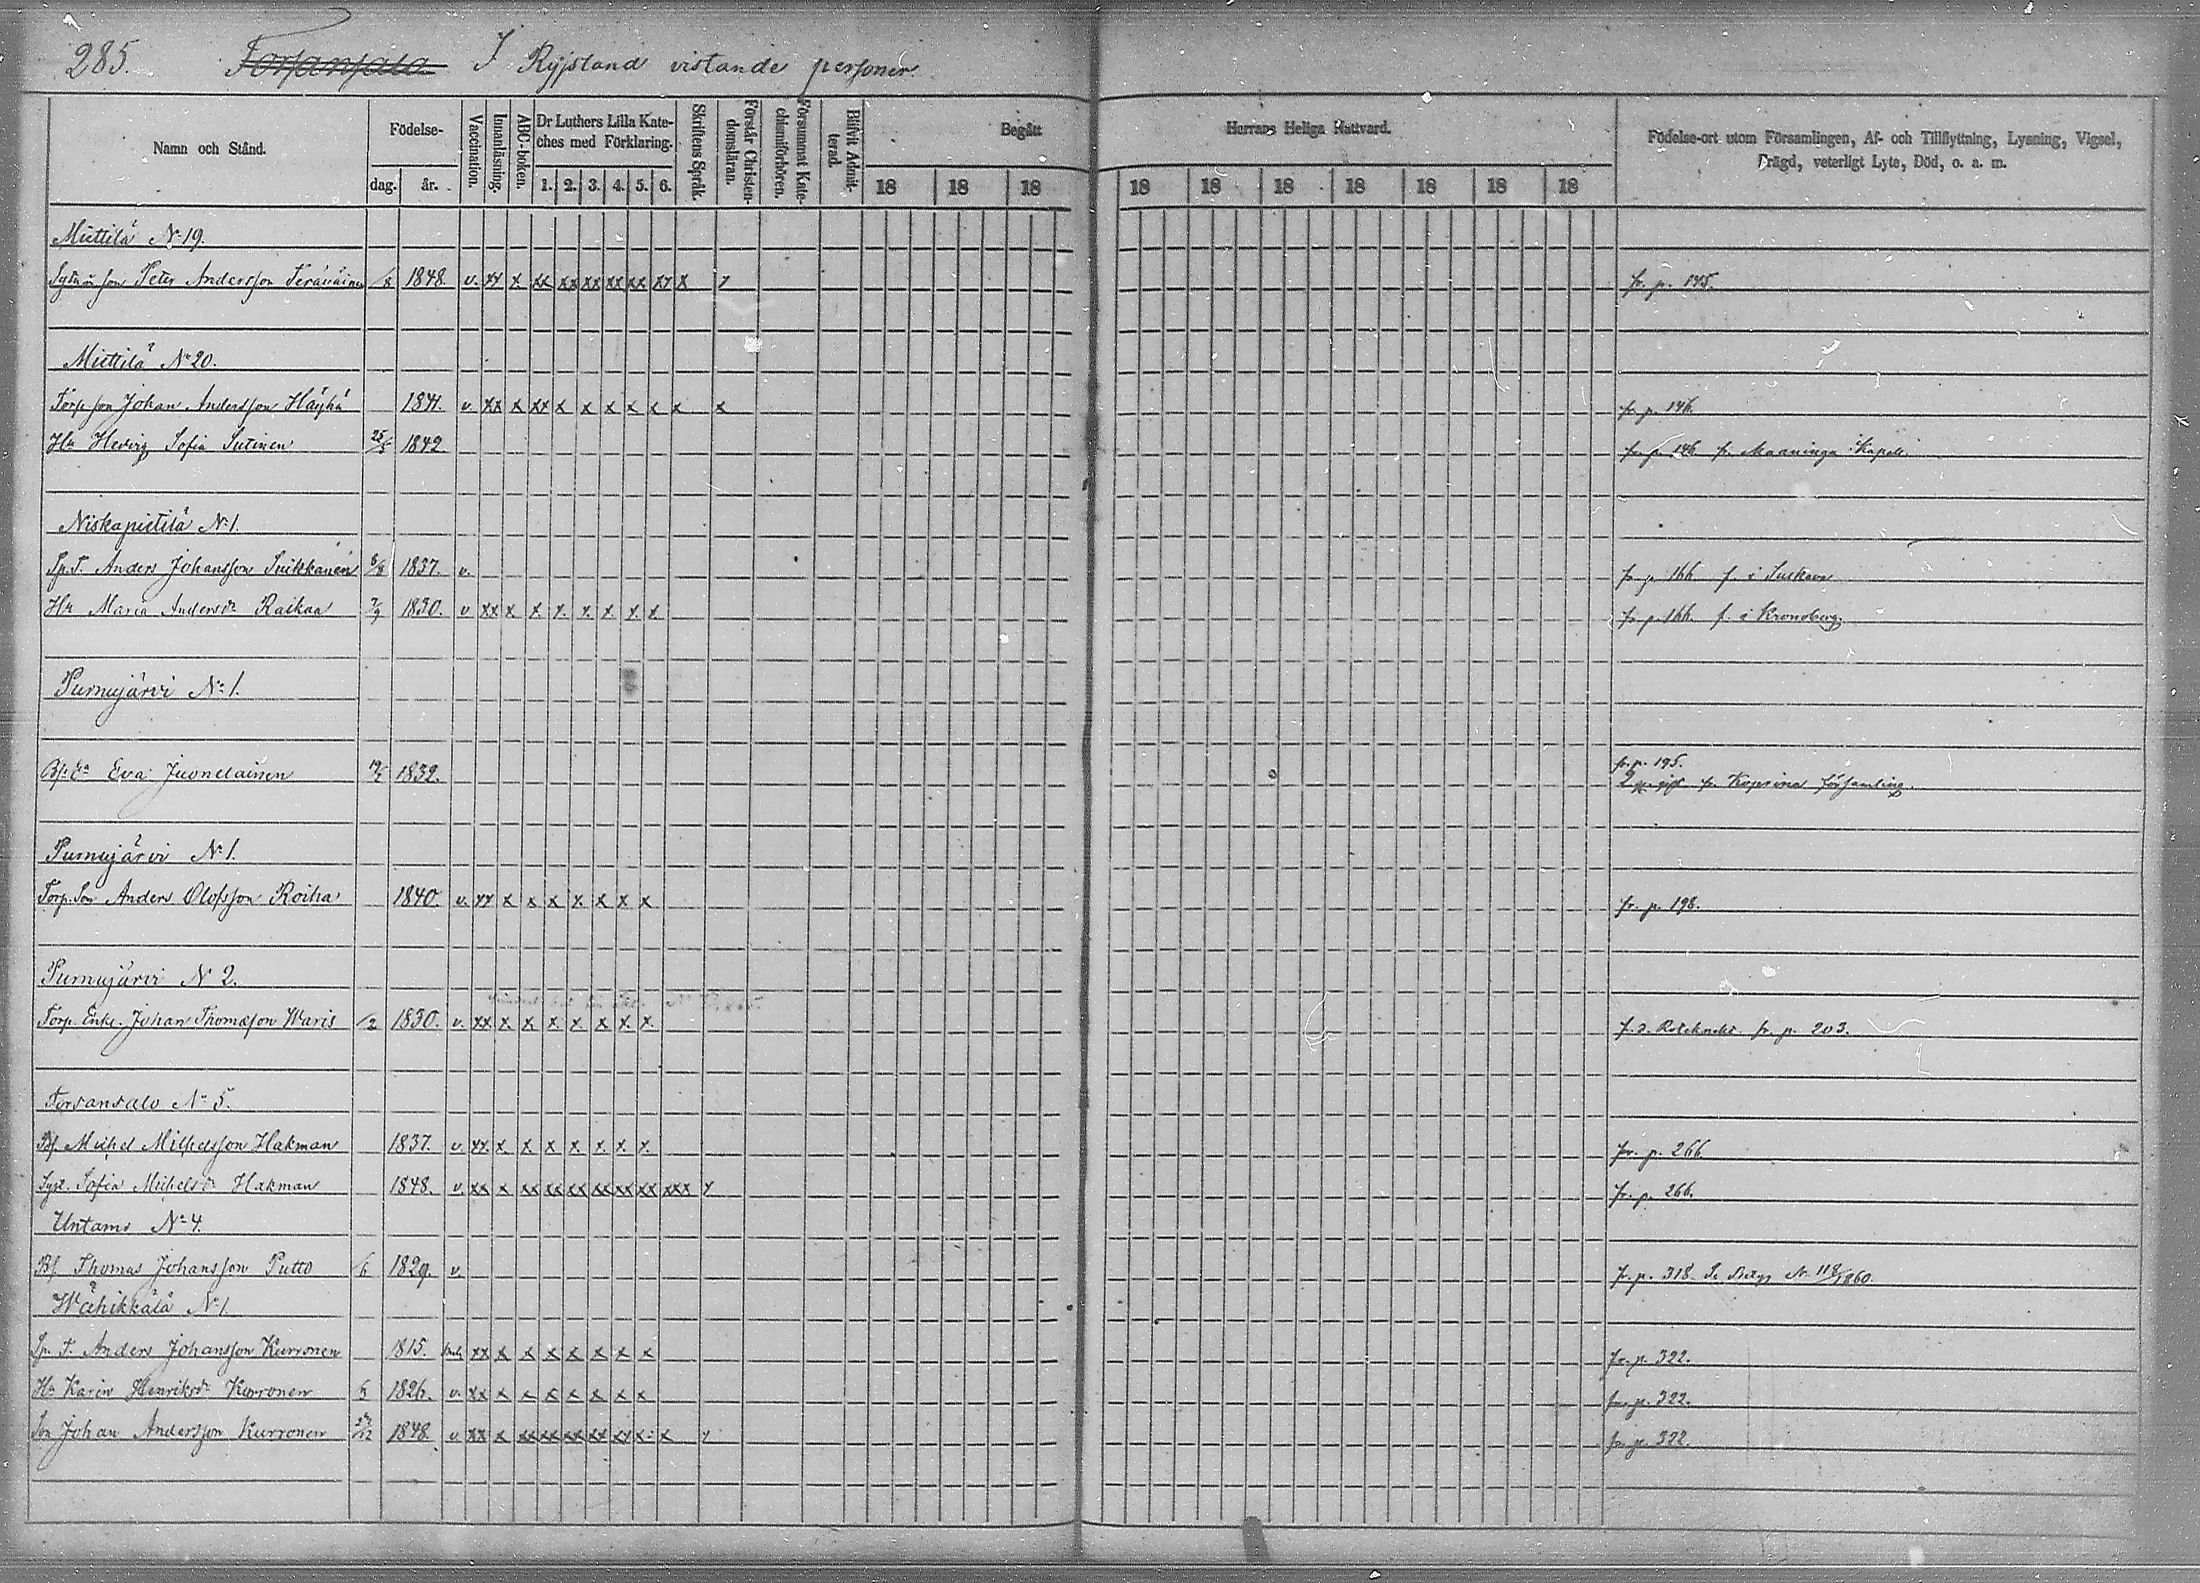 285. Forsansalo I Ryssland vistande personer
Namn och Stånd. Födelse- dag. år. Vaccination. Innanläsning. ABC-boken. Dr Luthers Lilla Kateches med Förklaring. 1. 2. 3. 4. 5. 6. Skriftens Språk. Förstår Christendomsläran. Försummat Katechismiförhören. Blifvit Admitterad. Begått Herrans Heliga Nattvard. 18 18 18 18 18 18 18 18 18 18 Födelse-ort utom Församlingen, Af- och Tillflyttning, Lysning, Vigsel, Frägd, veterligt Lyte, Död, o. a. m.
Miettilä N:19.
son Peter Andersson 1848. v. xx x xx xx xx xx xx xx x fr. p. 145.
Miettilä N:20.
Torp. son Johan Andersson Häyhä 1841. v. xx x xx x x x x x x x fr. p. 146.
Hu Hedvig Sofia Sutinen 25/5 1842. fr. p. 146 fr. Maaninga Kapell.
Niskapietilä N:1.
Sp.T. Anders Johansson Suikkanen 1837. v. fr. p. 166 f. i
Hu Maria Andersdr Raikaa 7/9 1830. v. xx x x x x x x x fr. p. 166. f. i Kronoberg.
Purnujärvi N:1.
Eva Juonelainen 1832. fr. p. 195.
gift fr. Koprina församling.
Purnujärvi N:1.
Torp. Son Anders Olofsson Roiha 1840. v. xx x x x x x x x fr. p. 198.
Purnujärvi N 2.
Torp. Enkl. Johan Thomasson Waris /2 1830. v. xx x x x x x x x fr. p. 203.
Forsansalo N:5.
Bf. Michel Michelsson Hakman 1837. v. xx x x x x x x x fr. p. 266.
Sofia Michelsdr Hakman 1848. v. xx x xx xx xx xx xx xx xxx fr. p. 266.
Untamo N:4.
Bf. Thomas Johansson Putto /6 1829. v. fr. p. 318. Se N. 118/1860.
Wähikkälä N:1.
Sp. T. Anders Johansson Kurronen 1815. xx x x x x x x x fr. p. 322.
Hu Karin Henriksdr Kurronen 1826. v. xx x x x x x x x fr. p. 322.
Son Johan Andersson Kurronen 1848. v. xx x xx xx xx xx xx x x fr. p. 322.